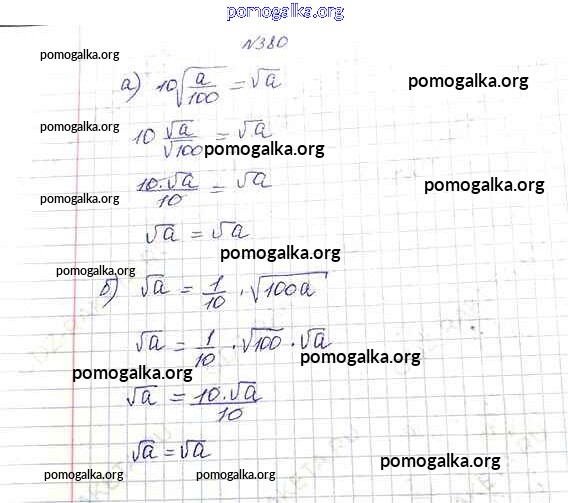 pomogalka.org
№380
pomogalka.org
а) 10√(a/100) = √a
pomogalka.org
pomogalka.org
10 √a/√100 = √a
pomogalka.org
10·√a/10 = √a
pomogalka.org
pomogalka.org
√a = √a
pomogalka.org
pomogalka.org
б) √a = 1/10 · √100a
√a = 1/10 · √100 · √a
pomogalka.org
pomogalka.org
√a = 10·√a/10
√a = √a
pomogalka.org
pomogalka.org
pomogalka.org